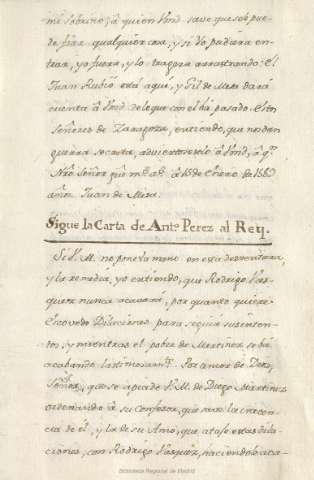 mi sobrino, à quien Vmd. save que se le pue-
de fiar qualquier cosa, y si Yo pudiera en-
trar, yo fuera, y lo tragera arrastrando: El
Juan Rubio està aqui, y Gil de Mesa dará
cuenta à Vmd. de lo que con el há pasado. Estos
Señores de Zaragoza, entiendo, que no dan
guerra secreta, advierteselo à Vmd, à q.n
Ntro Señor gue m.s a.s à 15 de Enero de 1589
años. Juan de Mesa.
Sigue la Carta de Ant.o Perez al Rey.
Si V. M. no pone la mano en esta desventura
y la remedia, yo entiendo, que Rodrigo Vaz-
quez nunca acavará, por quanto quiere
Escovedo Dilaciones para seguir sus inten-
tos, y mientras el pobre de Martinez se bá
acabando lastimosam.te Por amor de Dios,
Señor, que se apiade V. M. de Diego Martinez
ordenando à su Confesor, que mire la inocen-
cia de él, y la de su Amo, que ataje estas dila-
ciones, con Rodrigo Vazquez, haciendole aca-
Biblioteca Regional de Madrid